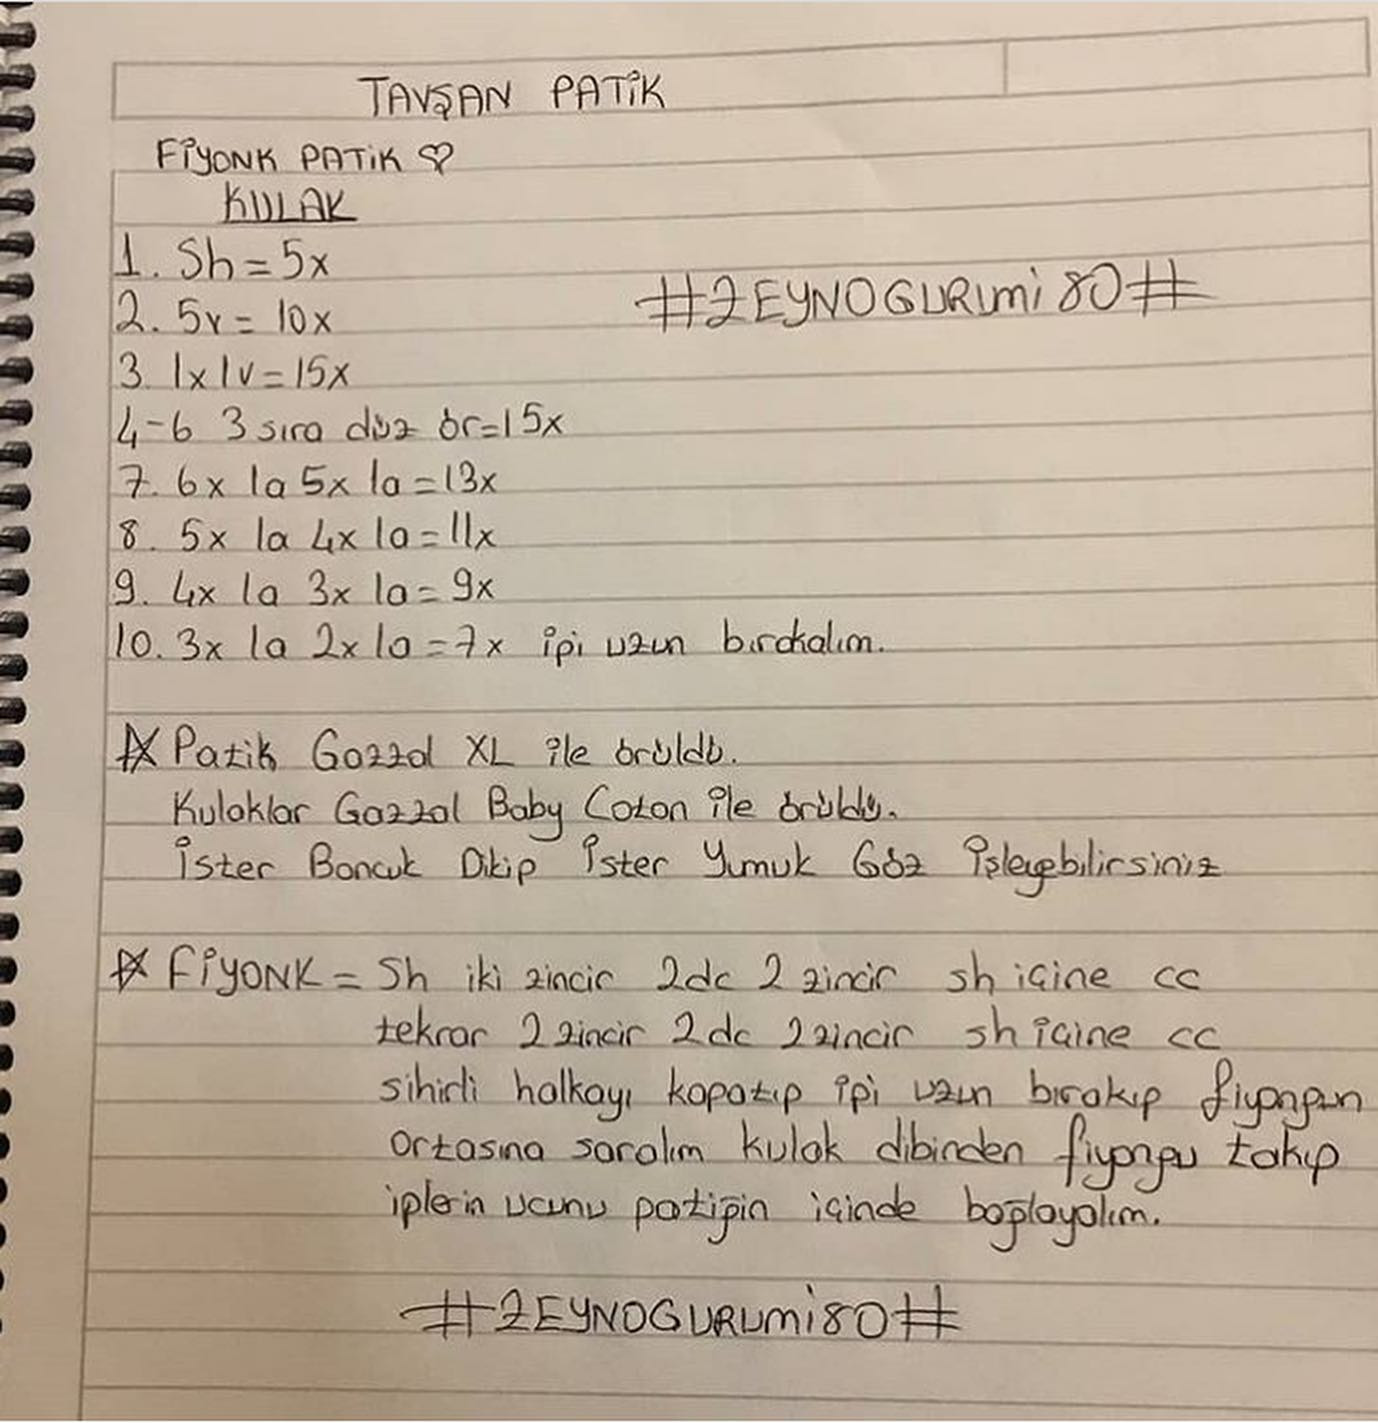 TAVŞAN PATİK
FİYONK PATİK ♡
KULAK
1. Sh = 5x
#ZEYNOGURUMİ80#
2. 5v = 10x
3. 1x 1v = 15x
4-6 3 sıra düz ör = 15x
7. 6x 1a 5x 1a = 13x
8. 5x 1a 4x 1a = 11x
9. 4x 1a 3x 1a = 9x
10. 3x 1a 2x 1a = 7x ipi uzun bırakalım.
☆ Patik Gazzal XL ile örüldü.
Kulaklar Gazzal Baby Coton ile örüldü.
İster Boncuk Dikip İster Yumuk Göz İşleyebilirsiniz
☆ FİYONK = Sh iki zincir 2dc 2 zincir sh içine cc
tekrar 2 zincir 2 dc 2 zincir sh içine cc
sihirli halkayı kapatıp ipi uzun bırakıp fiyongun
ortasına saralım kulak dibinden fiyongu takıp
iplerin ucunu patiğin içinde bağlayalım.
#ZEYNOGURUMİ80#